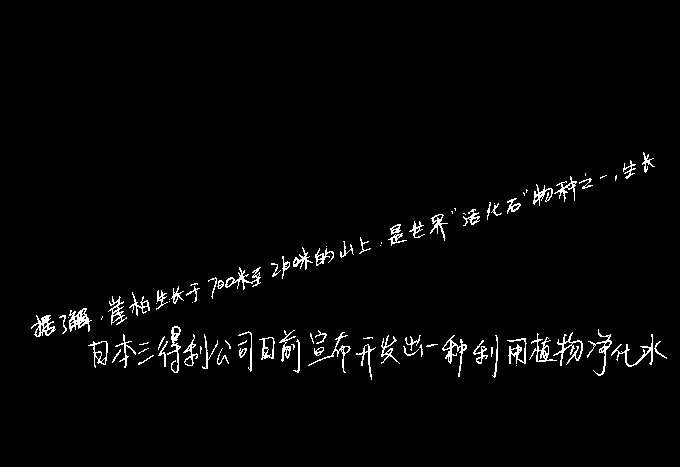 据了解,崖柏生长于700米至2100米的山上,是世界“活化石”物种之一,生长
日本三得利公司目前宣布开发出一种利用植物净化水